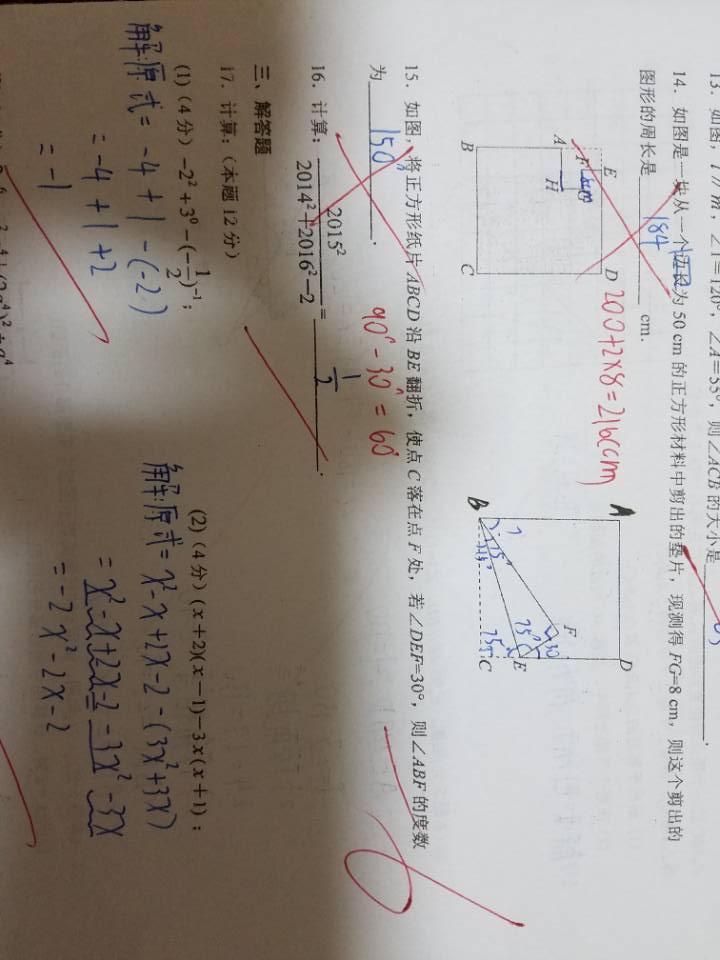 13. 如图, l∥m, ∠1=120°, ∠A=55°, 则∠ACB的大小是
14. 如图是一块从一个边长为50 cm的正方形材料中剪出的垫片, 现测得FG=8 cm, 则这个剪出的
图形的周长是 184 cm.
200+2×8=216(cm)
A
B
C
D
E
F
8cm
G
H
A
B
C
D
E
F
30
75°
75°
15°
15°
?
15. 如图, 将正方形纸片ABCD沿BE翻折, 使点C落在点F处, 若∠DEF=30°, 则∠ABF的度数
为 150° .
90° - 30° = 60°
16. 计算: 2015² / (2014²+2016²−2) = 1/2 .
三、解答题
17. 计算: (本题12分)
(1) (4分) −2²+3⁰−(−1/2)⁻¹;
解:原式= -4+1-(-2)
= -4+1+2
= -1
(2) (4分) (x+2)(x−1)−3x(x+1);
解:原式= x²-x+2x-2-(3x²+3x)
= x²-x+2x-2-3x²-3x
= -2x²-2x-2